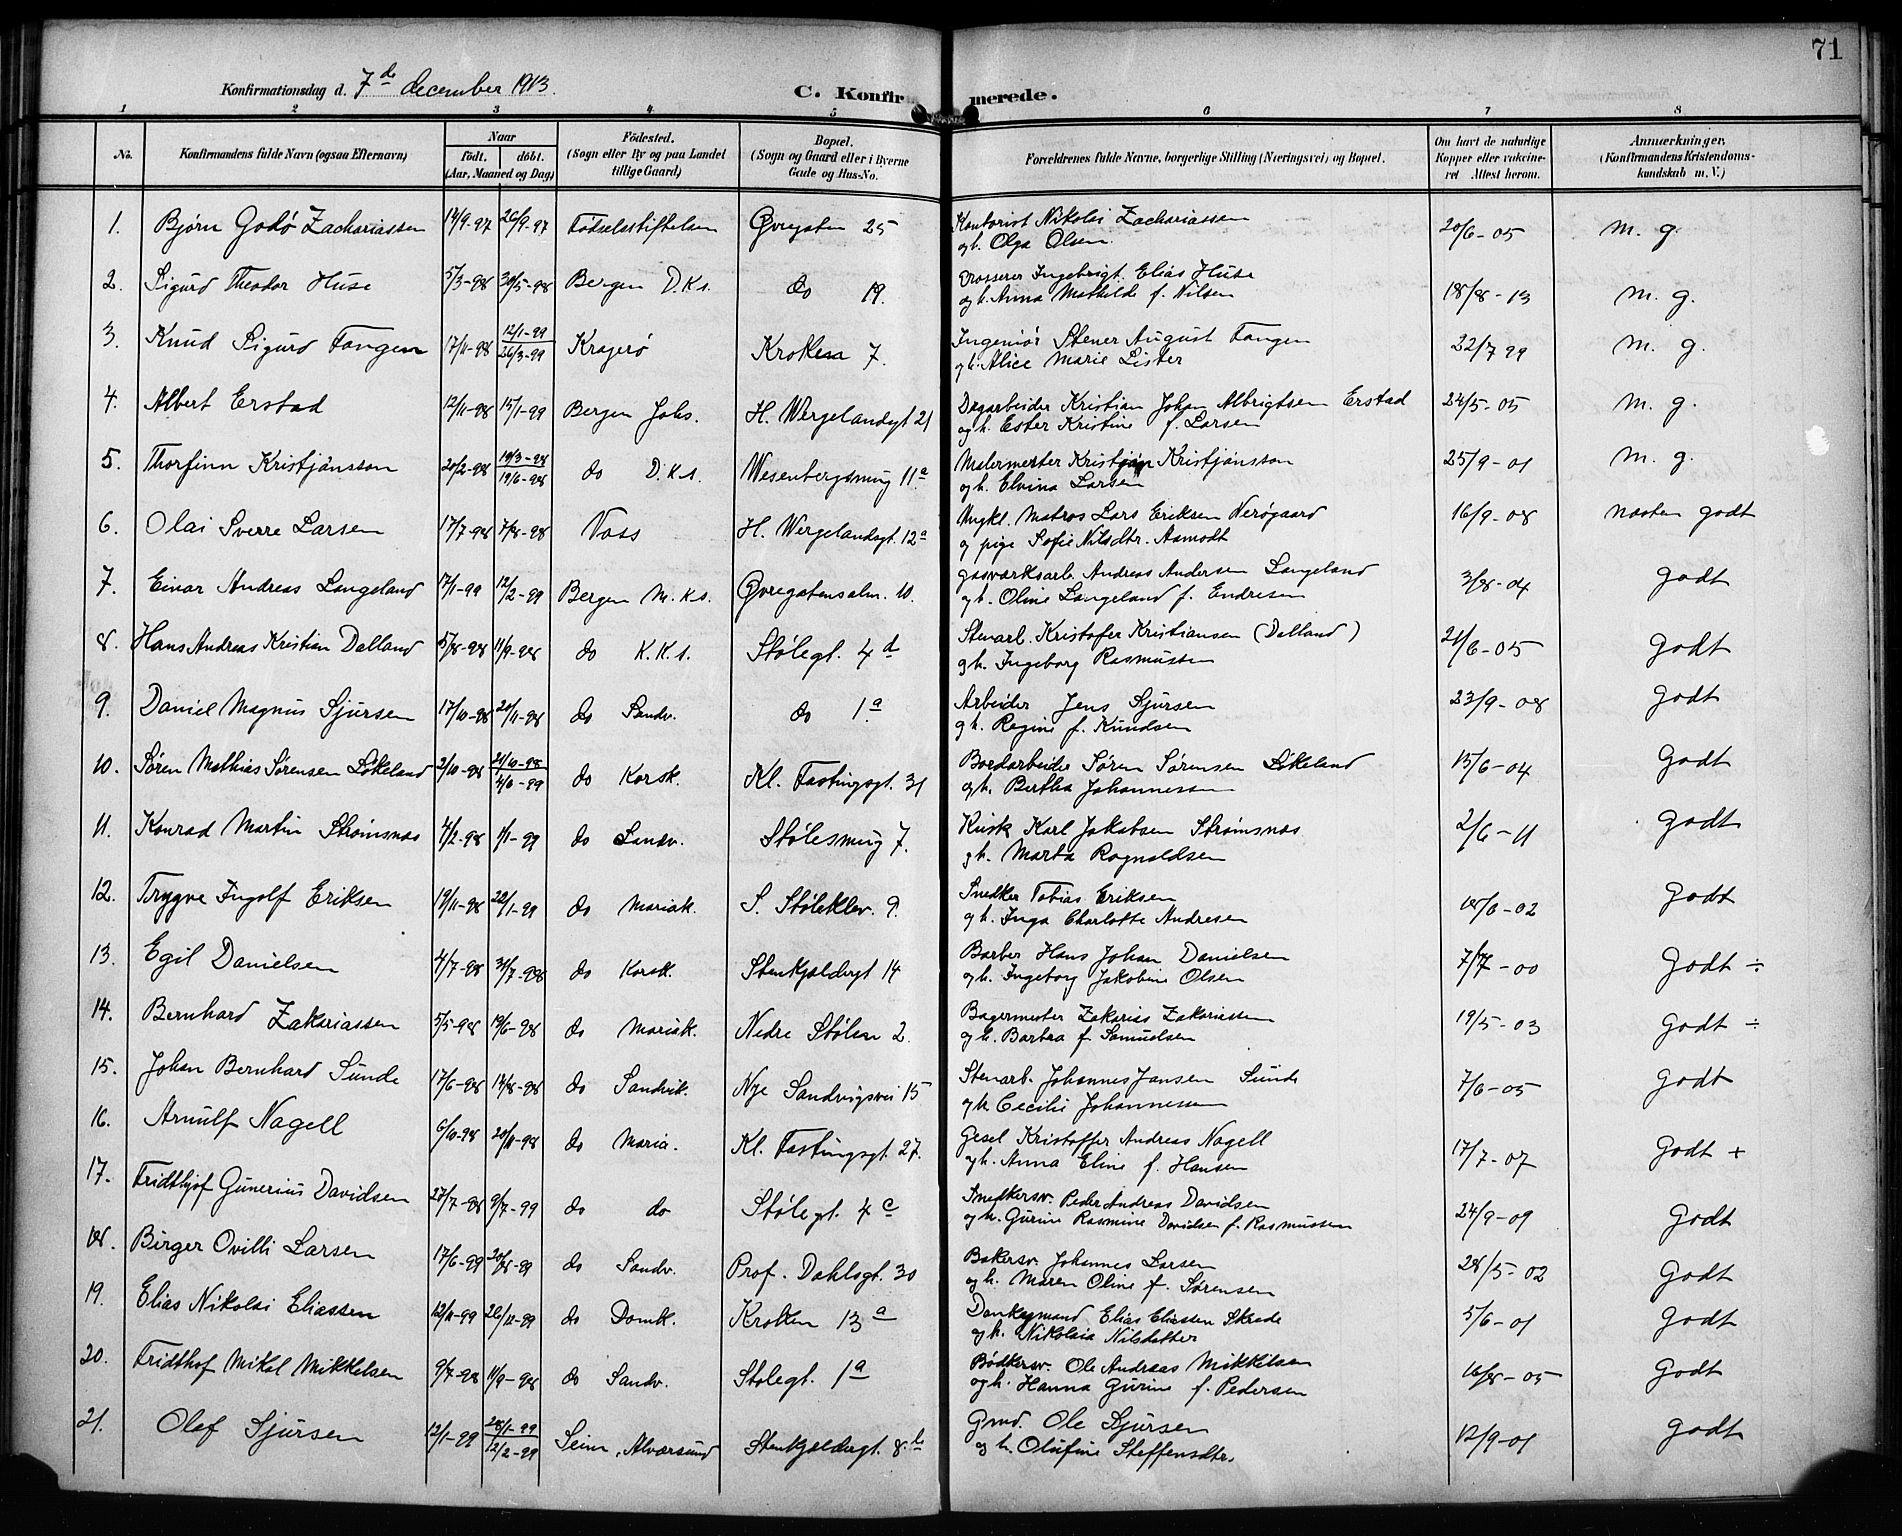 71
Konfirmationsdag d. 7de december 1913.
C. Konfirmerede.
1 2 3 4 5 6 7 8
No.
Konfirmandens fulde Navn (ogsaa Efternavn)
Naar
født. døbt.
(Aar, Maaned og Dag)
Fødested.
(Sogn eller By og paa Landet
tillige Gaard)
Bopæl.
(Sogn og Gaard eller i Byerne
Gade og Hus-No.
Forældrenes fulde Navne, borgerlige Stilling (Næringsvei) og Bopæl.
Om havt de naturlige
Kopper eller vaccine-
ret Attest herom.
Anmærkninger.
(Konfirmandens Kristendoms-
kundskab m. V.)
1. Bjørn Godø Zachariassen 14/9-97 26/9-97 Fødselsstiftelsen Øvregaten 25 Kontorist Nikolai Zachariassen 20/6-05 m. g.
og h. Olga Olsen.
2. Sigurd Theodor Huse 5/3-98 30/5-98 Bergen D.K.s. do 19. Grosserer Ingebrigt Elias Huse 18/8-13 m. g.
og h. Anna Mathilde f. Nilsen
3. Knud Sigurd Fangen 17/11-98 12/1-99 26/3-99 Kragerø Kroken 7. Ingeniør Stener August Fangen 22/7 99 m. g.
og h. Alice Marie Lister
4. Albert Erstad 12/11-98 15/1-99 Bergen Johs. H. Wergelandsgt 21 Dagarbeider Kristian Johan Albrigtsen Erstad 24/5-05 m. g.
og h. Ester Kristine f. Larsen
5. Thorfinn Kristjánsson 20/2-98 19/3-98 19/6-98 do D.K.s. Wesenbergsmug 11a Malermester Kristján Kristjánsson 25/9-01 m. g.
og h. Elvina Larsen
6. Olai Sverre Larsen 17/7-98 7/8-98 Voss H. Wergelandsgt. 12a Ungkl. Matros Lars Eriksen Nerøgaard 16/9-08 næsten godt
og pige Sofie Nilsdtr. Aamodt
7. Einar Andreas Langeland 17/1-99 12/2-99 Bergen M.K.s. Øvregatensalm. 10. Gasværksarb. Andreas Andersen Langeland 3/8-04 Godt
og h. Oline Langeland f. Endresen
8. Hans Andreas Kristian Dalland 5/8-98 11/9-98 do K.K.s. Stølegt. 4d Stenarb. Kristofer Kristiansen (Dalland) 21/6-05 Godt
og h. Ingeborg Rasmussen
9. Daniel Magnus Sjursen 17/10-98 20/11-98 do Sandv. do 1a Arbeider Jens Sjursen 23/9-08 Godt
og h. Regine f. Knudsen
10. Søren Mathias Sørensen Løkeland 2/10-98 21/10-98 4/6-99 do Korsk. Kl. Fastingsgt. 31 Bordarbeider Søren Sørensen Løkeland 15/6-04 Godt
og h. Bertha Johannessen
11. Konrad Martin Strømsnæs 4/2-98 1/1-99 do Sandv. Stølesmug 7. Kusk Karl Jakobsen Strømsnæs 2/6-11 Godt
og h. Marta Ragnaldsen
12. Trygve Ingolf Eriksen 19/11-98 22/1-99 do Mariak. S. Støleklev. 9. Snedker Tobias Eriksen 18/6-02 Godt
og h. Inga Charlotte Andresen
13. Egil Danielsen 4/7-98 31/7-98 do Korsk. Stenkjeldergt 14 Barber Hans Johan Danielsen 7/7-00 Godt ÷
og h. Ingeborg Jakobine Olsen
14. Bernhard Zakariassen 5/5-98 19/6-98 do Mariak. Nedre Stølen 2. Bagermester Zakarias Zakariassen 19/5-03 Godt ÷
og h. Barbra f. Samuelsen
15. Johan Bernhard Sunde 17/6-98 14/8-98 do Sandvik. Nye Sandvigsvei 15 Stenarb. Johannes Jansen Sunde 7/6-05 Godt
og h. Cecilie Johannessen
16. Arnulf Nagell 6/10-98 20/11-98 do Maria. Kl. Fastingsgt. 27. Gesel Kristoffer Andreas Nagell 17/7-07 Godt +
og h. Anna Eline f. Hansen
17. Fridthjof Gunerius Davidsen 27/7-98 9/7-99 do do Stølegt. 4c Snedkersv. Peder Andreas Davidsen 24/9-09 Godt
og h. Gurine Rasmine Davidsen f. Rasmussen
18. Birger Ovilli Larsen 17/6-99 20/8-99 do Sandv. Prof. Dahlsgt. 30 Bakersv. Johannes Larsen 28/5-02 Godt
og h. Maren Oline f. Sørensen
19. Elias Nikolai Eliassen 12/11-99 26/11-99 do Domk. Kroken 13a Dankegmand Elias Eliassen Skrede 5/6-01 Godt
og h. Nikolaia Nilsdatter
20. Fridthof Mikal Mikkelsen 9/7-98 11/9-98 do Sandv. Stølegt. 1a Bødkersv. Ole Andreas Mikkelsen 16/8-05 Godt
og h. Hanna Gurine f. Pedersen
21. Olaf Sjursen 12/1-99 28/1-99 12/2-99 Seim, Alværsund Stenkjeldergt. 8b Gmd. Ole Sjursen 12/9-01 Godt
og h. Olufine Steffensdtr.